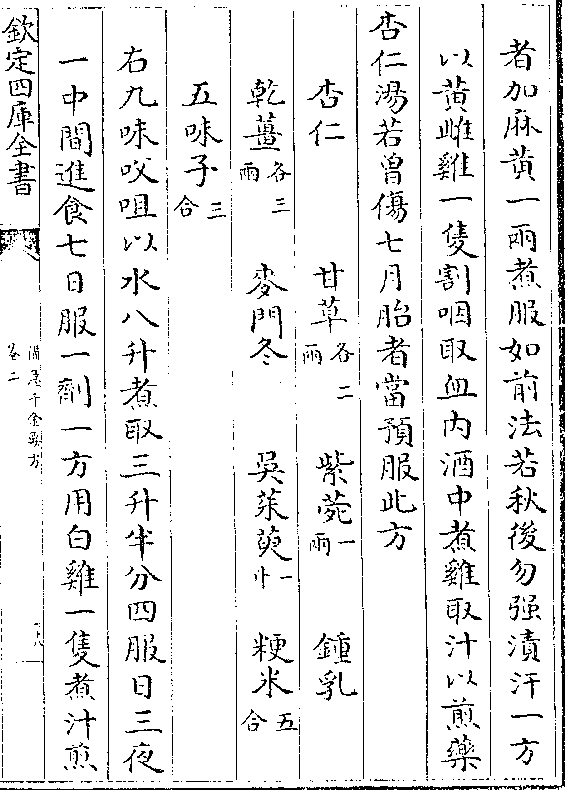 者加麻黄一兩煮服如前法若秋後勿强漬汗一方
以黄雌雞一隻割咽取血内酒中煮雞取汁以煎藥
杏仁湯若曽傷七月胎者當預服此方
杏仁 甘草各二兩 紫菀一兩 鍾乳
乾薑各三兩 麥門冬 吳茱萸一升 粳米五合
五味子三合
右九味㕮咀以水八升煮取三升半分四服日三夜
一中間進食七日服一劑一方用白雞一隻煮汁煎
欽定四庫全書
備急千金要方
卷二